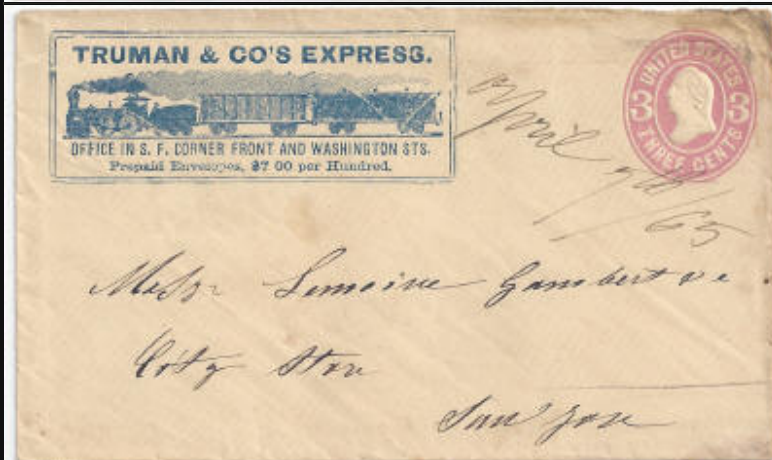 TRUMAN & CO'S EXPRESS.
OFFICE IN S. F. CORNER FRONT AND WASHINGTON STS.
Prepaid Envelopes, $7 00 per Hundred.
UNITED STATES
3 3
THREE CENTS
April 7th/65
Messr Lemoine Gambert
City Store
San Jose